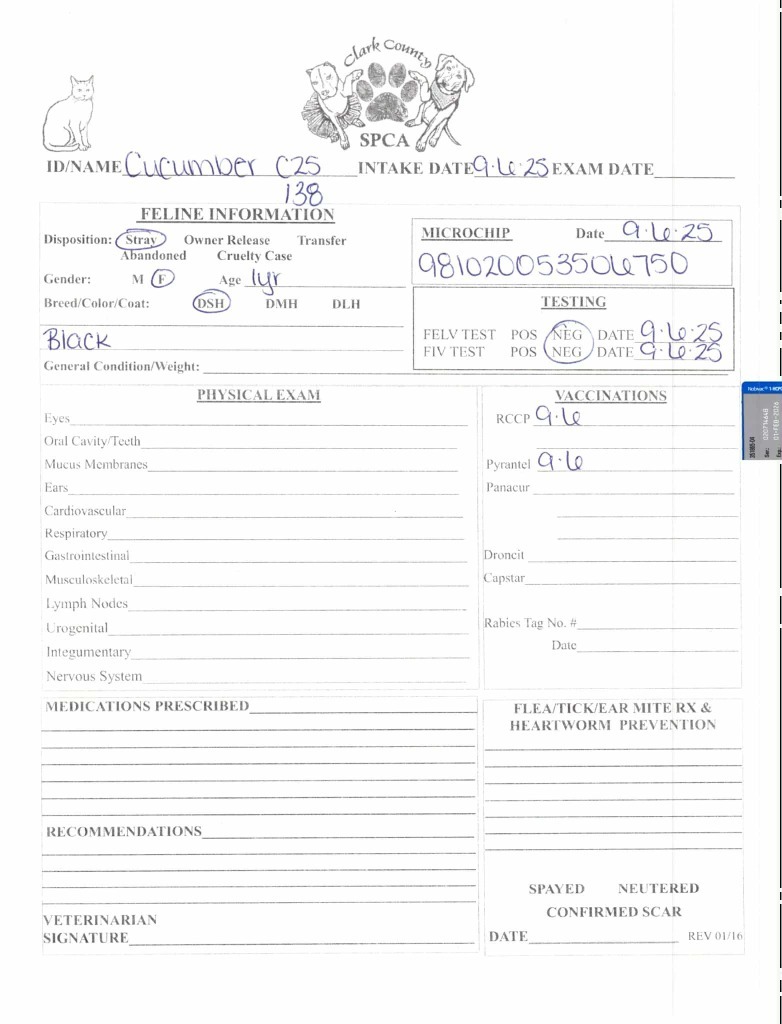 Clark County
SPCA
ID/NAME Cucumber C25 INTAKE DATE 9·6·25 EXAM DATE
138
FELINE INFORMATION
Disposition: Stray Owner Release Transfer
Abandoned Cruelty Case
Gender: M F Age 1yr
Breed/Color/Coat: DSH DMH DLH
Black
General Condition/Weight:
MICROCHIP Date 9·6·25
981020053506750
TESTING
FELV TEST POS NEG DATE 9·6·25
FIV TEST POS NEG DATE 9·6·25
PHYSICAL EXAM
Eyes
Oral Cavity/Teeth
Mucus Membranes
Ears
Cardiovascular
Respiratory
Gastrointestinal
Musculoskeletal
Lymph Nodes
Urogenital
Integumentary
Nervous System
VACCINATIONS
RCCP 9·6
Pyrantel 9·6
Panacur
Droncit
Capstar
Rabies Tag No. #
Date
MEDICATIONS PRESCRIBED
RECOMMENDATIONS
VETERINARIAN
SIGNATURE
FLEA/TICK/EAR MITE RX &
HEARTWORM PREVENTION
SPAYED NEUTERED
CONFIRMED SCAR
DATE REV 01/16
01-FEB-2026